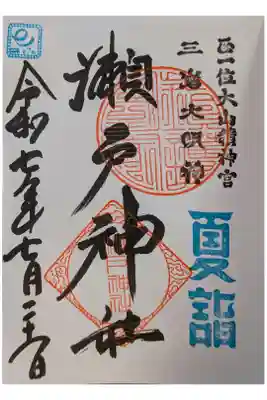 正一位大山積神宮
三嶋大明神
夏詣
瀬戸神社
令和七年七月二十一日